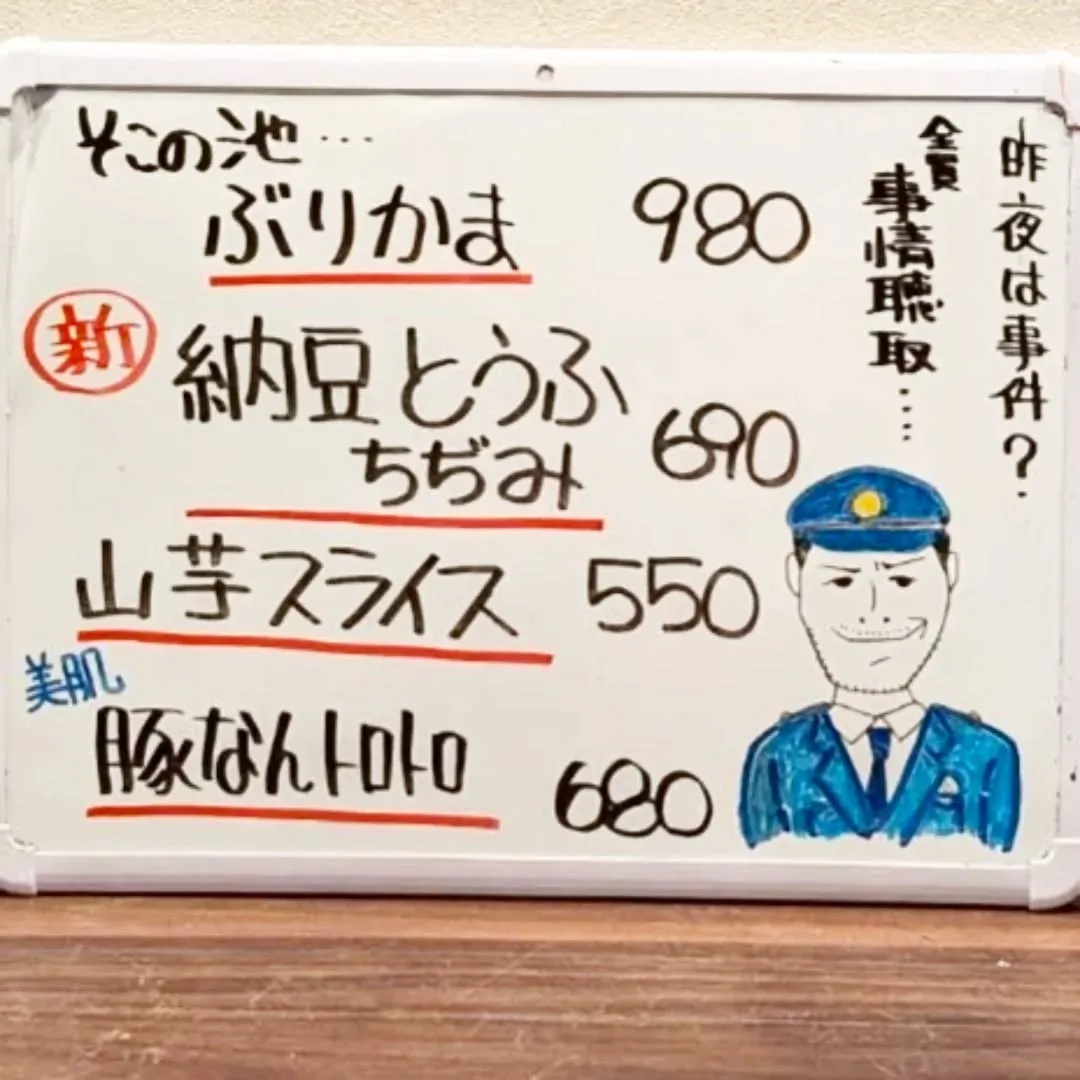 昨夜は事件？
全員
事情聴取‥‥
そこの池…
ぶりかま 980
新 納豆とうふ
ちぢみ 690
山芋スライス 550
美肌
豚なんトロトロ 680